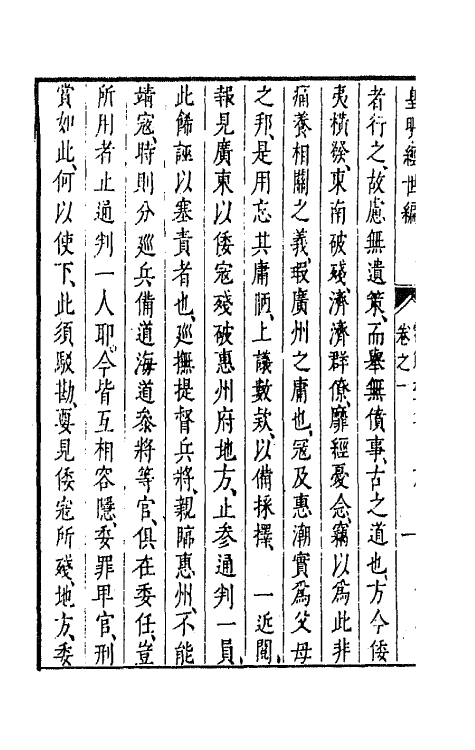 皇明經世編
卷之一
者行之、故慮無遺策、而舉無債事、古之道也、方今倭
夷橫發、東南破殘、濟濟群僚、靡經憂念、竊以爲此非
痛養相關之義、瑕廣州之庸也、寇及惠潮實爲父母
之邦、是用忘其庸陋、上議數款、以備採擇、 一近閱、
報見廣東以倭寇殘破惠州府地方、止參通判一員、
此餙誣以塞責者也、巡撫提督兵將、親臨惠州、不能
靖寇、時則分巡兵備道海道參將等官、俱在委任、豈
所用者止通判一人耶、今皆互相容隱、委罪卑官、刑
賞如此、何以使下、此須駁勘、要見倭寇所殘、地方、委